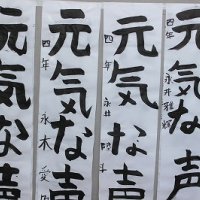 元気な声
四年 永井雅輝
元気な声
四年 永井 斗
元気な声
四年 永木 愛
元気な声